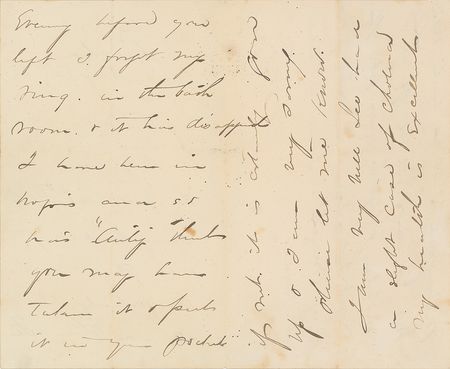 Evening before you
left I forgot my
ring. in the bath
room. & it has disappeared
I have been in
hopes and so
has "Autie" thinks
you may have
taken it & put
it in your pocket
if not it is actually gone
up & I am my
please let me know.
I am very well Lee had
a slight case of cholera
my health is Excellent